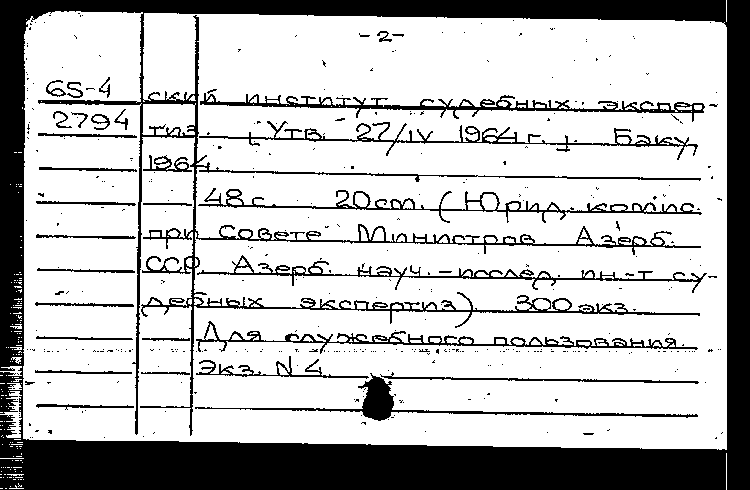 -2-
65-4 ский институт судебных экспер-
2794 тиз. [Утв. 27/IV 1964 г.]. Баку,
1964.
48 с. 20 cm. (Юрид. комис.
при Совете Министров Азерб.
ССР. Азерб. науч.-исслед. ин-т су-
дебных экспертиз) 300 экз.
Для служебного пользования.
Экз. N 4.